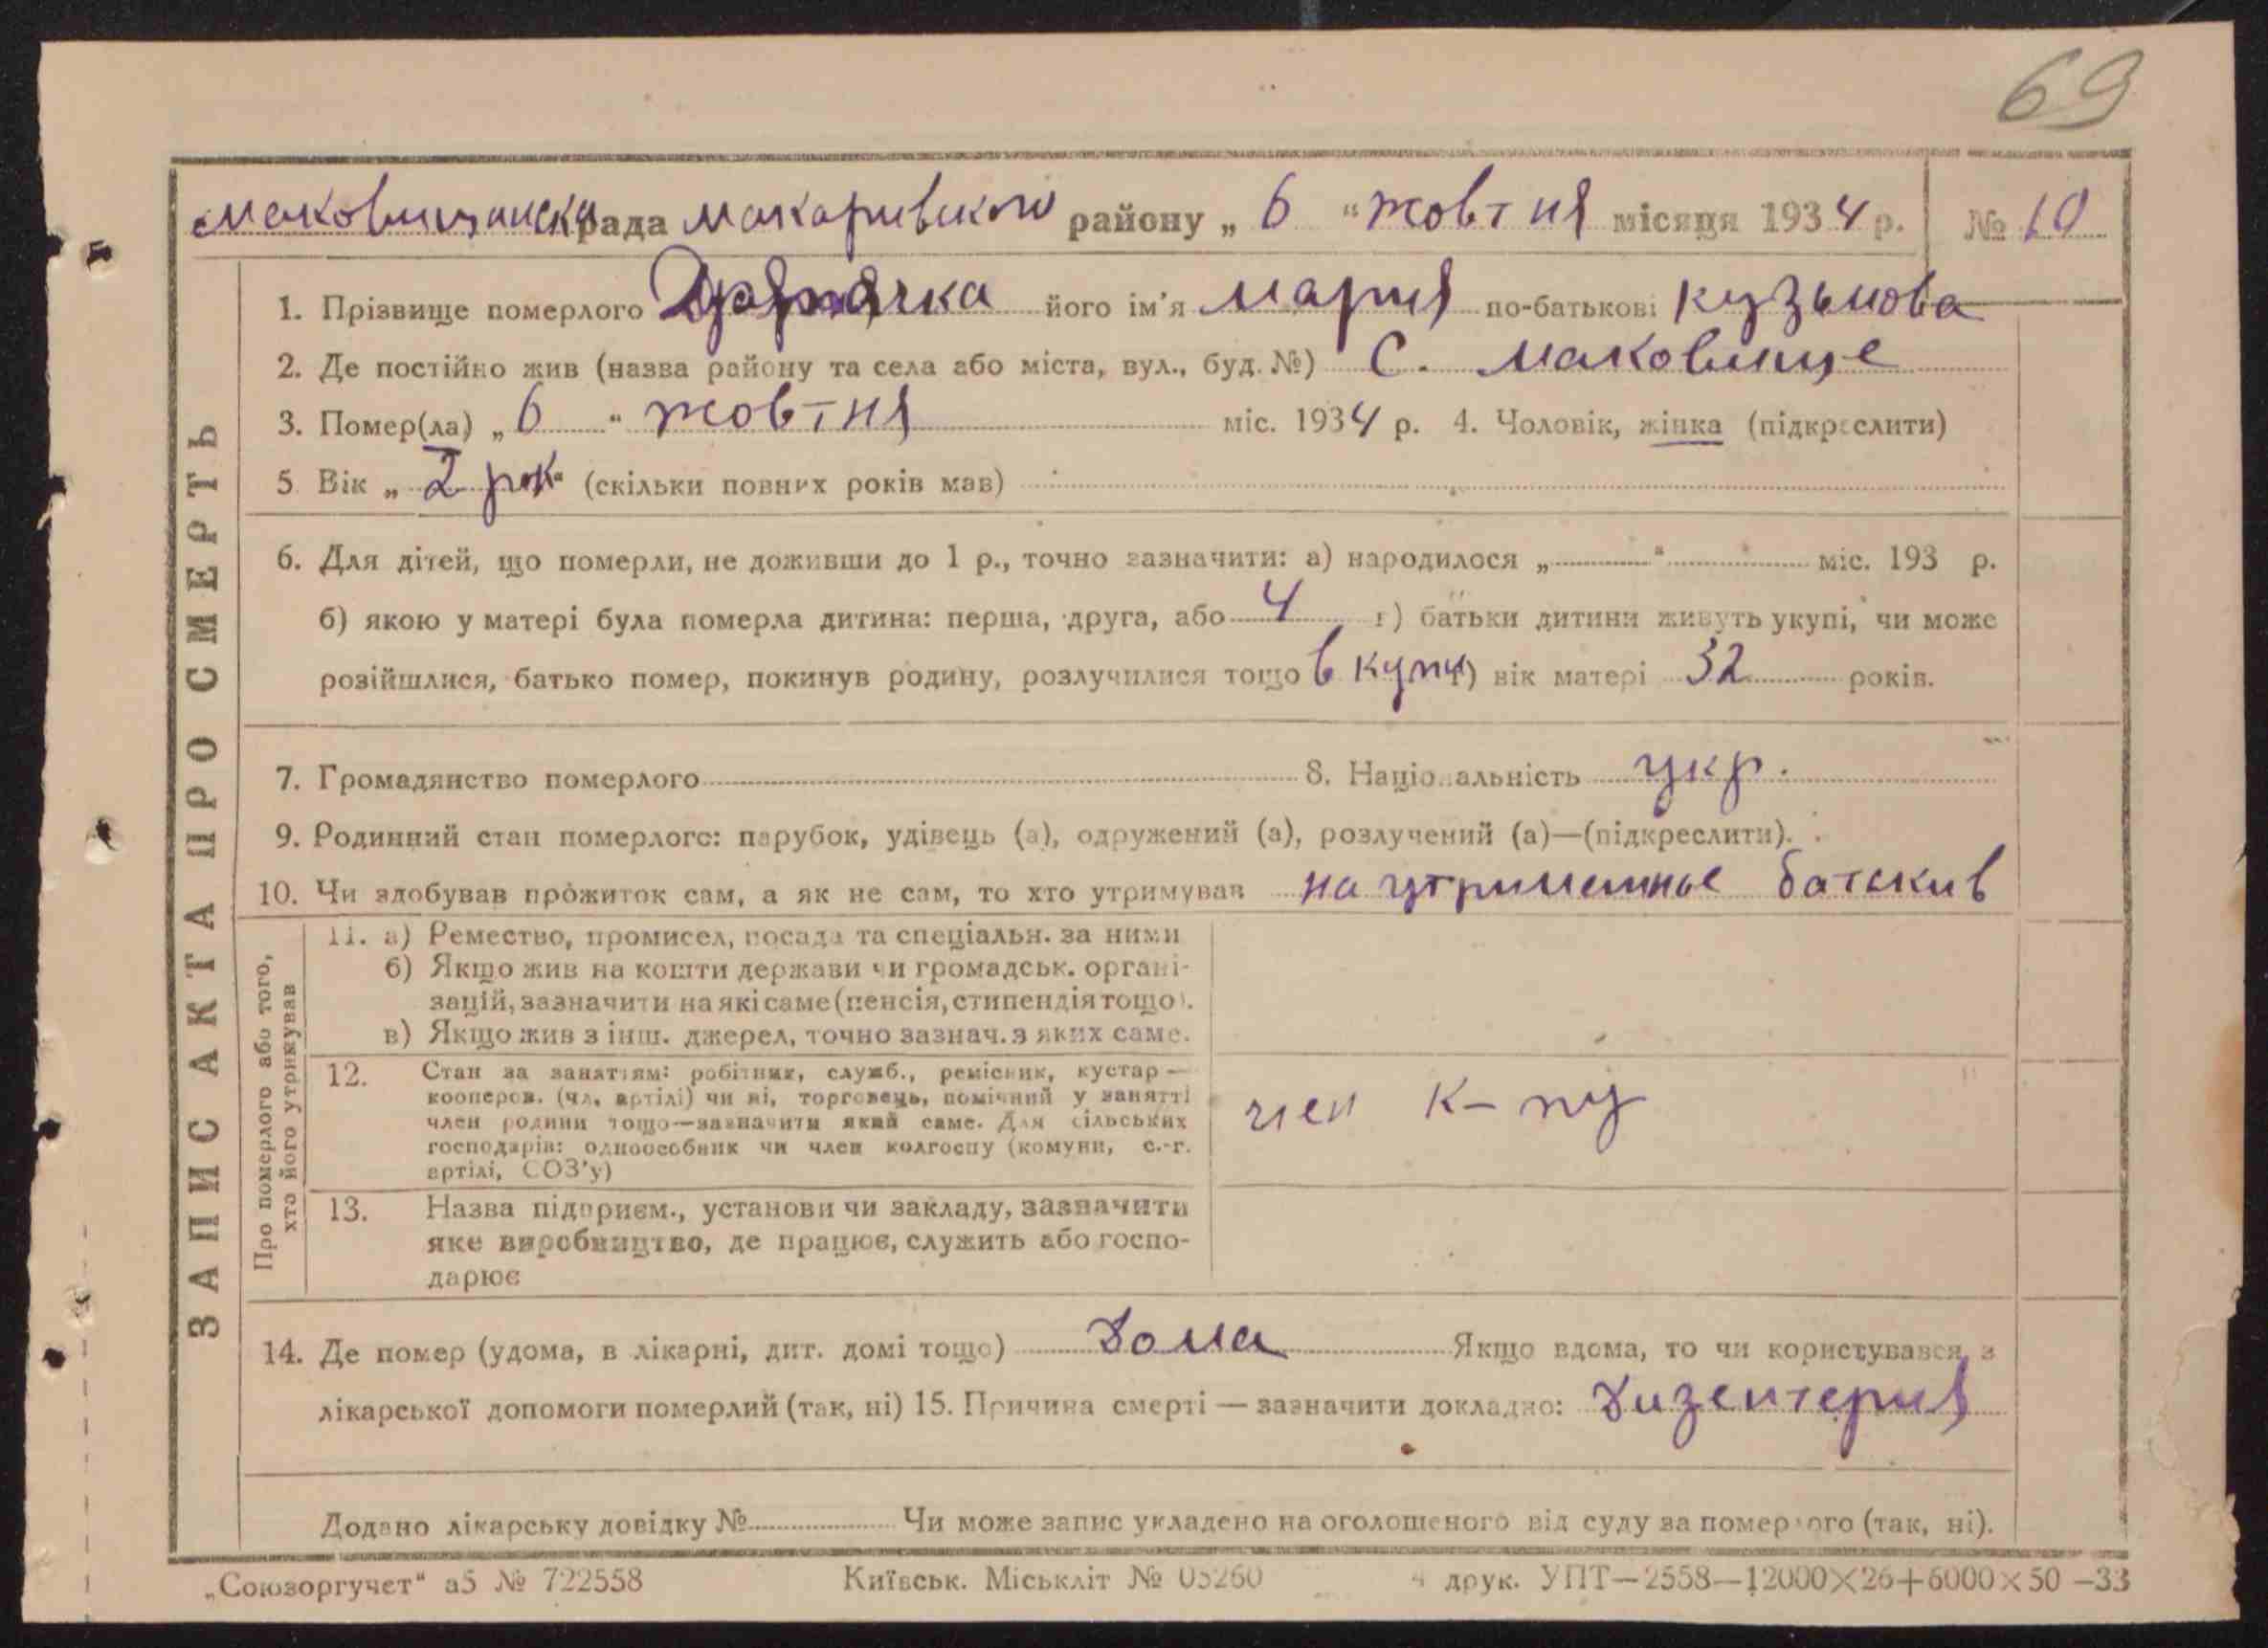 69
Маковищанска рада Макаривского району „ 6 “ жовтня місяця 1934 р. № 10
1. Прізвище померлого його ім’я Мария по-батькові Кузьмова
2. Де постійно жив (назва району та села або міста, вул., буд. №) С. Маковище
3. Помер(ла) „ 6 “ жовтня міс. 1934 р. 4. Чоловік, жінка (підкреслити)
5 Вік „ 2 рок “ (скільки повних років мав)
6. Для дітей, що померли, не доживши до 1 р., точно зазначити: а) народилося „ “ міс. 193 р.
б) якою у матері була померла дитина: перша, друга, або 4 г) батьки дитини живуть укупі, чи може
розійшлися, батько помер, покинув родину, розлучилися тощо в купи ) вік матері 32 років.
7. Громадянство померлого 8. Національність укр.
9. Родинний стан померлого: парубок, удівець (а), одружений (а), розлучений (а)—(підкреслити).
10. Чи здобував прожиток сам, а як не сам, то хто утримував на утриманные батькив
11. а) Ремество, промисел, посада та спеціальн. за ними
б) Якщо жив на кошти держави чи громадськ. органі-
зацій, зазначити на які саме (пенсія, стипендія тощо).
в) Якщо жив з інш. джерел, точно зазнач. з яких саме.
12. Стан за заняттям: робітник, служб., ремісник, кустар —
кооперов. (чл. артілі) чи ні, торговець, помічний у занятті
член родини тощо—зазначити який саме. Для сільських
господарів: одноособник чи член колгоспу (комуни, с.-г.
артілі, СОЗ’у)
член к-пу
13. Назва підприєм., установи чи закладу, зазначити
яке виробництво, де працює, служить або госпо-
дарює
Про померлого або того,
хто його утримував
ЗАПИС АКТА ПРО СМЕРТЬ
14. Де помер (удома, в лікарні, дит. домі тощо) Дома Якщо вдома, то чи користувався з
лікарської допомоги померлий (так, ні) 15. Причина смерті — зазначити докладно: Дизентерия
Додано лікарську довідку № Чи може запис укладено на оголошеного від суду за померлого (так, ні).
„Союзоргучет“ а5 № 722558 Київськ. Міськліт № 05260 друк. УПТ—2558—12000×26+6000×50 —33